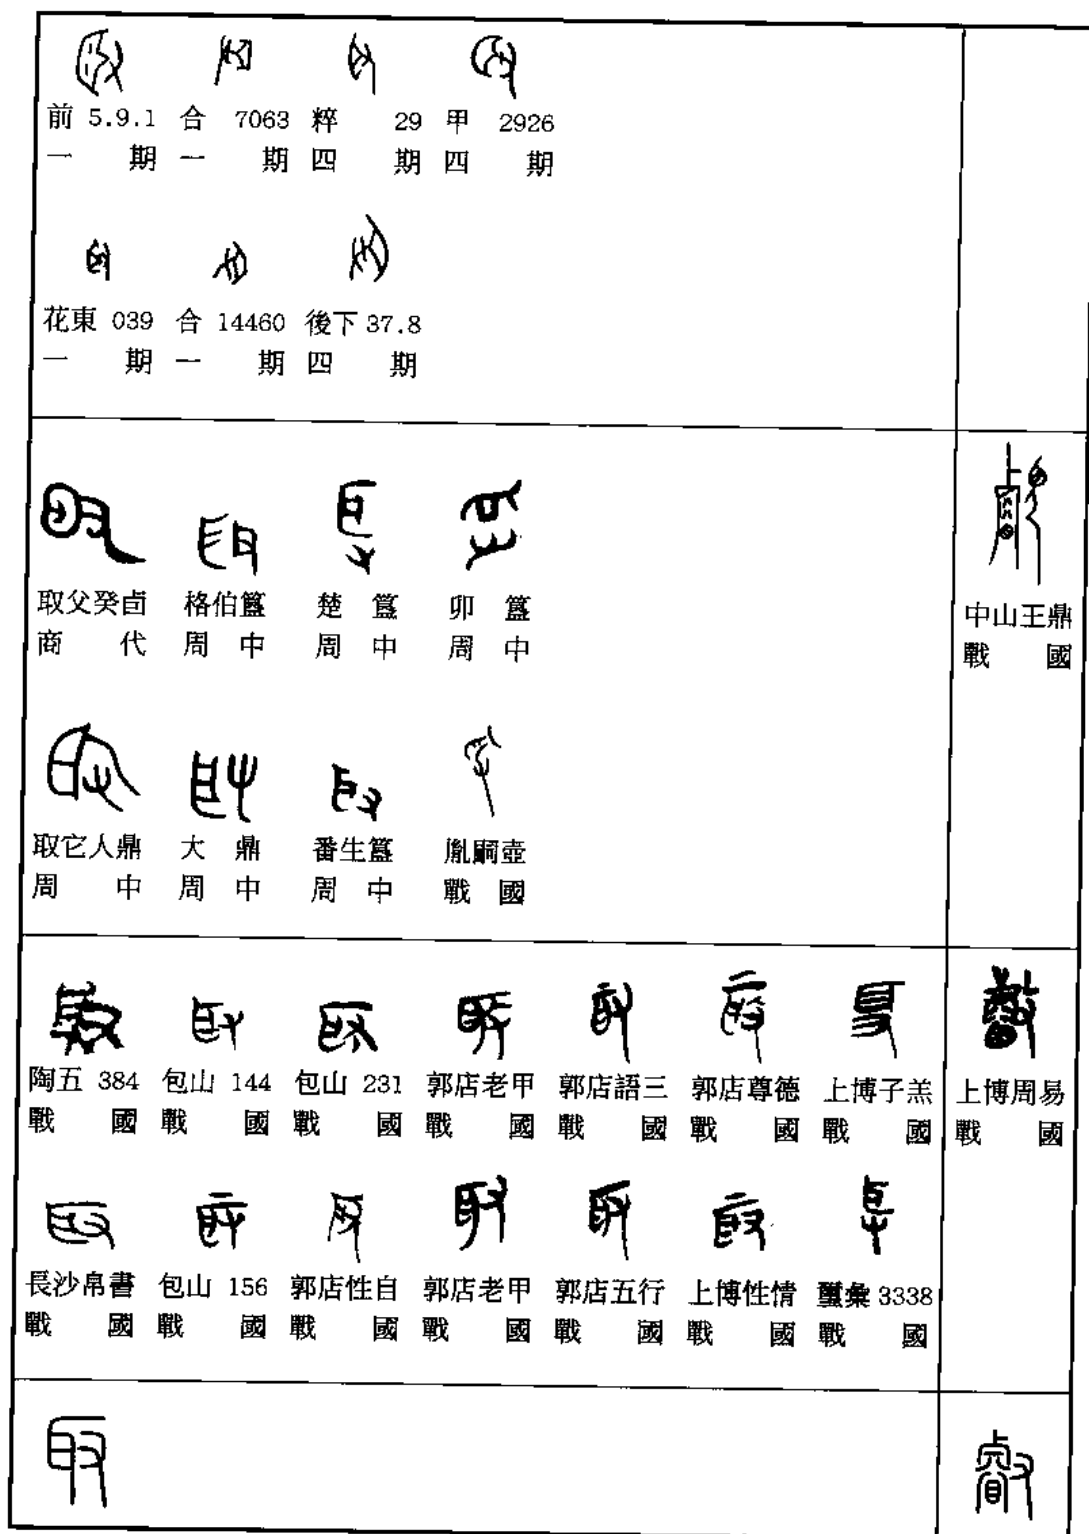 前 5.9.1 合 7063 粹 29 甲 2926
一期 一期 四期 四期
花東 039 合 14460 後下 37.8
一期 一期 四期
取父癸卣 格伯簋 楚簋 卯簋
商代 周中 周中 周中
中山王鼎
戰國
取它人鼎 大鼎 番生簋 胤嗣壺
周中 周中 周中 戰國
陶五 384 包山 144 包山 231 郭店老甲 郭店語三 郭店尊德 上博子羔 上博周易
戰國 戰國 戰國 戰國 戰國 戰國 戰國 戰國
長沙帛書 包山 156 郭店性自 郭店老甲 郭店五行 上博性情 璽彙 3338
戰國 戰國 戰國 戰國 戰國 戰國 戰國
取 叡